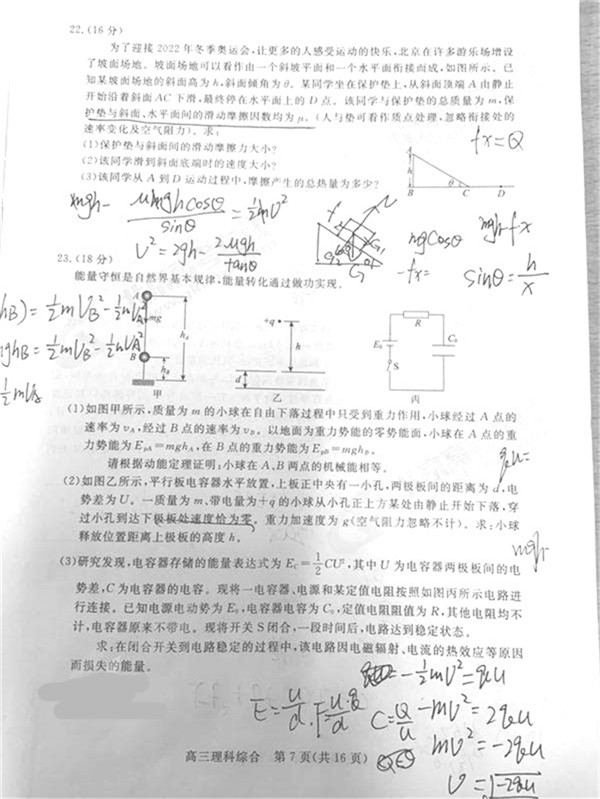 22.(16分)
为了迎接2022年冬季奥运会,让更多的人感受运动的快乐,北京在许多游乐场增设
了坡面场地。坡面场地可以看作由一个斜坡平面和一个水平面衔接而成,如图所示。已
知某坡面场地的斜面高为h,斜面倾角为θ。某同学坐在保护垫上,从斜面顶端A由静止
开始沿着斜面AC下滑,最终停在水平面上的D点。该同学与保护垫的总质量为m,保
护垫与斜面、水平面间的滑动摩擦因数均为μ。(人与垫可看作质点处理,忽略衔接处的
速率变化及空气阻力)。求:
(1)保护垫与斜面间的滑动摩擦力大小?
(2)该同学滑到斜面底端时的速度大小?
(3)该同学从A到D运动过程中,摩擦产生的总热量为多少?
fx=Q
A
h
θ
B C D
mgh- μmghcosθ/sinθ = ½mv²
v²=2gh- 2μgh/tanθ
mgcosθ
-fx=
mgh-fx
sinθ=h/x
23.(18分)
能量守恒是自然界基本规律,能量转化通过做功实现。
hB)=½mVB²-½mVA²
mghB=½mVB²-½mVA²
A
mg
hA
B
hB
甲
+q
h
d
乙
R
E₀
C₀
S
丙
(1)如图甲所示,质量为m的小球在自由下落过程中只受到重力作用,小球经过A点的
速率为vA,经过B点的速率为vB。以地面为重力势能的零势能面,小球在A点的重
力势能为EpA=mghA,在B点的重力势能为EpB=mghB。
请根据动能定理证明:小球在A、B两点的机械能相等。
qu=
(2)如图乙所示,平行板电容器水平放置,上板正中央有一小孔,两极板间的距离为d,电
势差为U。一质量为m、带电量为+q的小球从小孔正上方某处由静止开始下落,穿
过小孔到达下极板处速度恰为零。重力加速度为g(空气阻力忽略不计)。求:小球
释放位置距离上极板的高度h。
mgh
(3)研究发现,电容器存储的能量表达式为EC=½CU²,其中U为电容器两极板间的电
势差,C为电容器的电容。现将一电容器、电源和某定值电阻按照如图丙所示电路进
行连接。已知电源电动势为E₀,电容器电容为C₀,定值电阻阻值为R,其他电阻均不
计,电容器原来不带电。现将开关S闭合,一段时间后,电路达到稳定状态。
求:在闭合开关到电路稳定的过程中,该电路因电磁辐射、电流的热效应等原因
而损失的能量。
-½mv²=qu
E=u/d F=u·q/d C=Q/u -mv²=2qu
mv²=-2qu
v=√-2qu
高三理科综合 第7页(共16页)